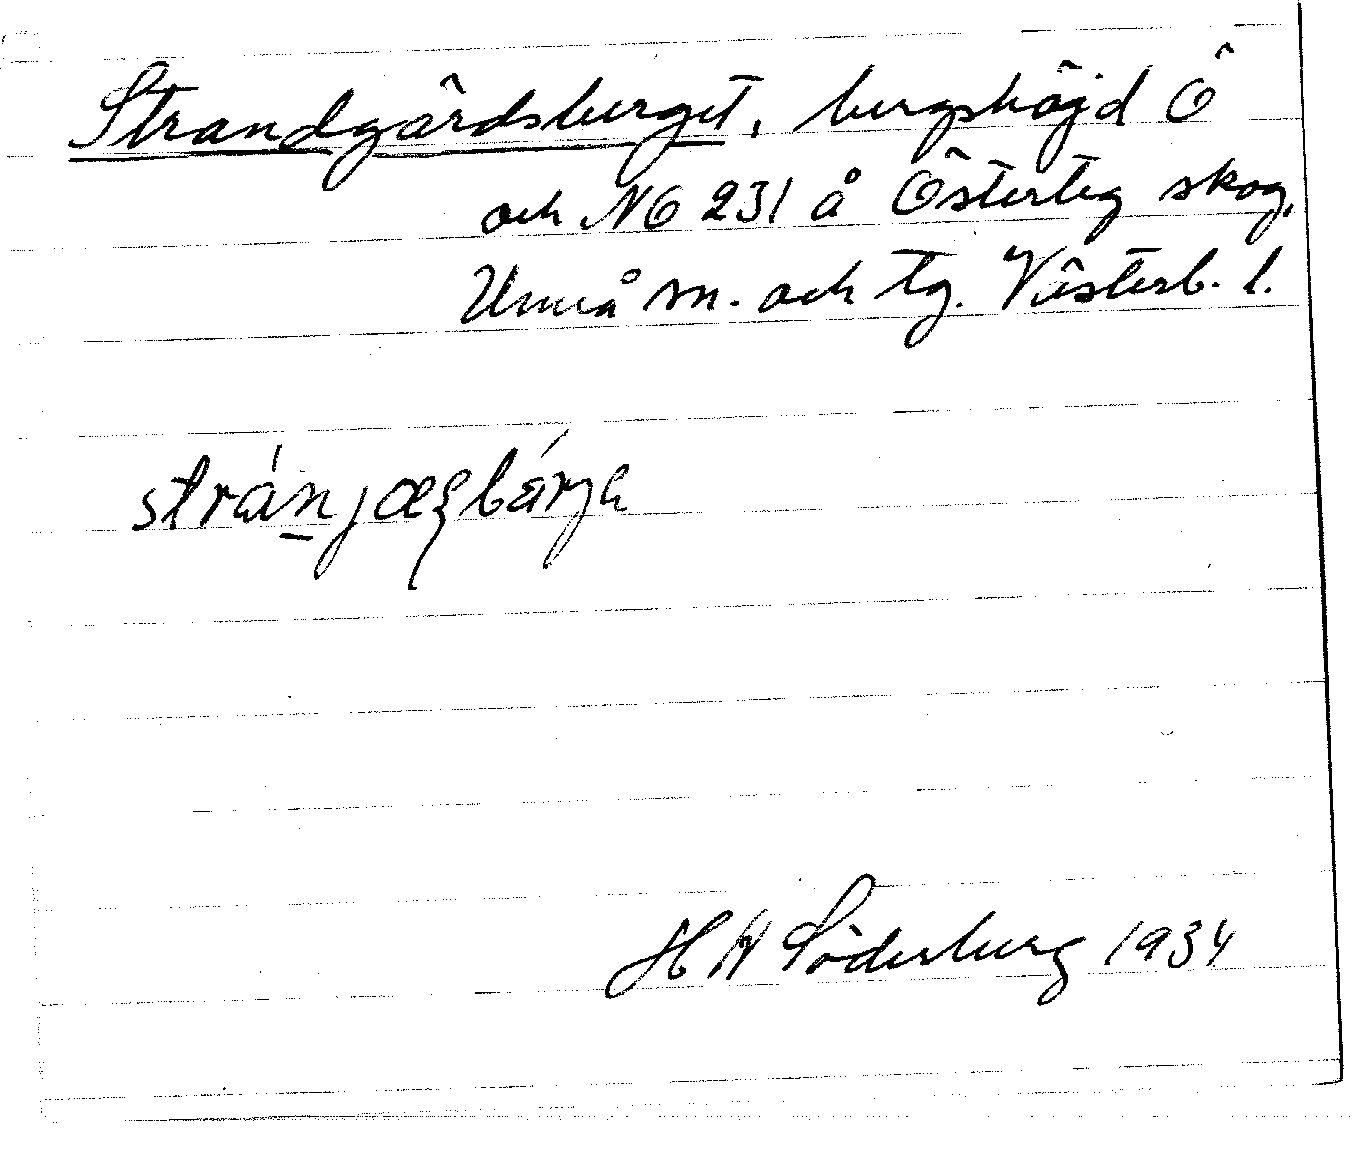 Strandgårdsberget, bergshöjd Ö
och NÖ 231 å Österteg skog,
Umeå sn. och tg. Västerb. l.
stránjæʂbárja
H W Söderberg 1934